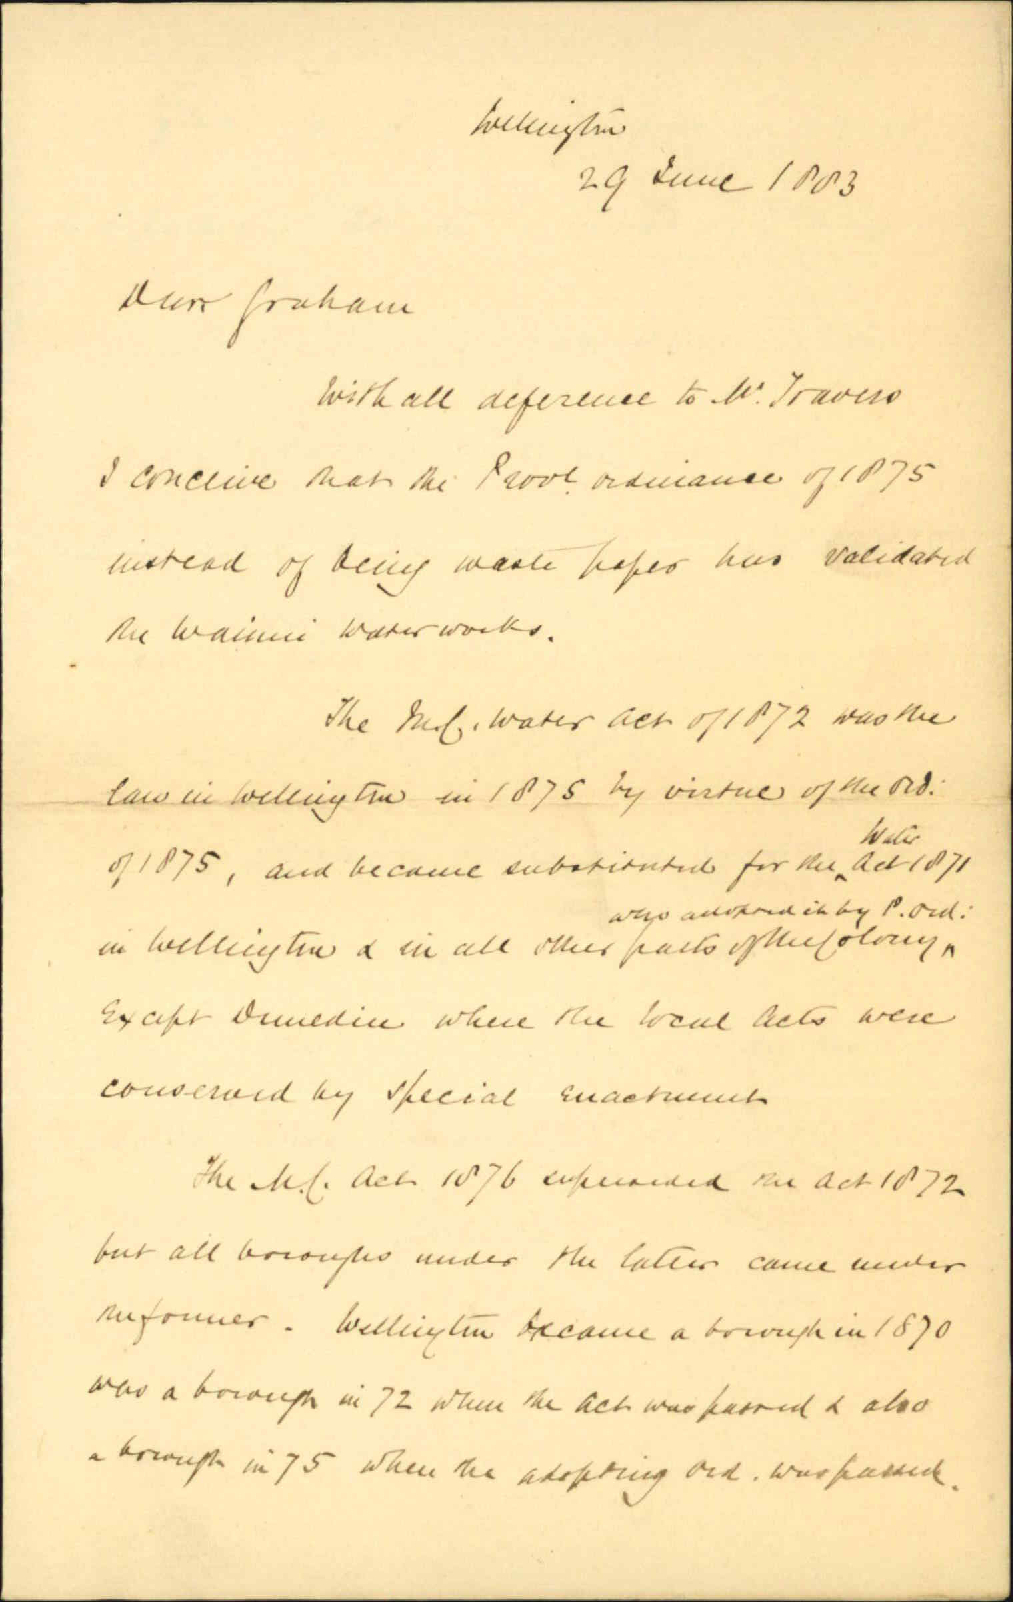 Wellington
29 June 1883
Dear Graham
With all deference to Mr. Travers
I conceive that the Provl. ordinance of 1875
instead of being waste paper has validated
the Wainui Waterworks.
The M.C. Water Act of 1872 was the
law in Wellington in 1875 by virtue of the Ord:
Water
of 1875, and became substituted for the Act 1871
who adopted it by P. Ord:
in Wellington & in all other parts of the Colony
Except Dunedin where the local Acts were
conserved by special enactment
The M.C. Act 1876 superseded the Act 1872
but all boroughs under the latter came under
the former. Wellington became a borough in 1870
was a borough in 72 when the Act was passed & also
a borough in 75 when the adopting Ord. was passed.